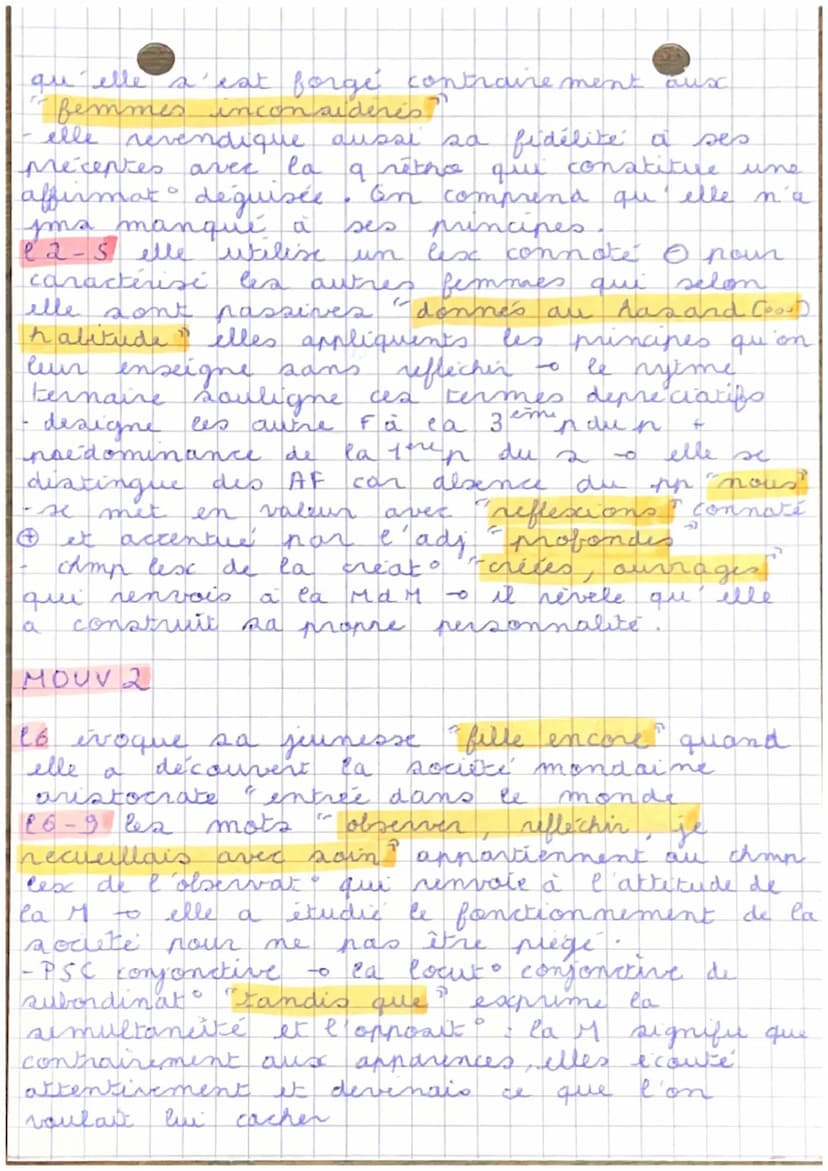 qu'elle s'est forgé contrairement aux
"femmes inconsidérés"
- elle revendique aussi sa fidélité à ses
préceptes avec la q rétho qui constitue une
affirmat° déguisée. On comprend qu'elle n'a
jms manqué à ses principes.
l2-5 elle utilise un lex connoté ⊖ pour
caractérisé les autres femmes qui selon
elle sont passives "donnés au hasard (...)
habitude" elles appliquents les principes qu'on
leur enseigne sans reflechir → le rytme
ternaire souligne ces termes depréciatifs
- designe les autre F à la 3ème p du p +
prédominance de la 1ère p du s → elle se
distingue des AF car absence du pp "nous"
- se met en valeur avec "reflexions" connoté
⊕ et accentué par l'adj "profondes"
- chmp lex de la créat° "créées, ouvrages"
qui renvois à la MdM → il révele qu'elle
a construit sa propre personnalité.
MOUV 2
l6 évoque sa jeunesse "fille encore" quand
elle a découvert la société mondaine
aristocrate "entrée dans le monde
l6-9 les mots "observer, réflechir, je
recueillais avec soin" appartiennent au chmp
lex de l'observat° qui renvoie à l'attitude de
la M → elle a étudié le fonctionnement de la
société pour ne pas être piégé.
- PSC conjonctive → la locut° conjonctive de
subordinat° "tandis que" exprime la
simultanéité et l'opposit° : la M signifu que
contrairement aux apparences, elles écouté
attentivement et devinais ce que l'on
voulait lui cacher